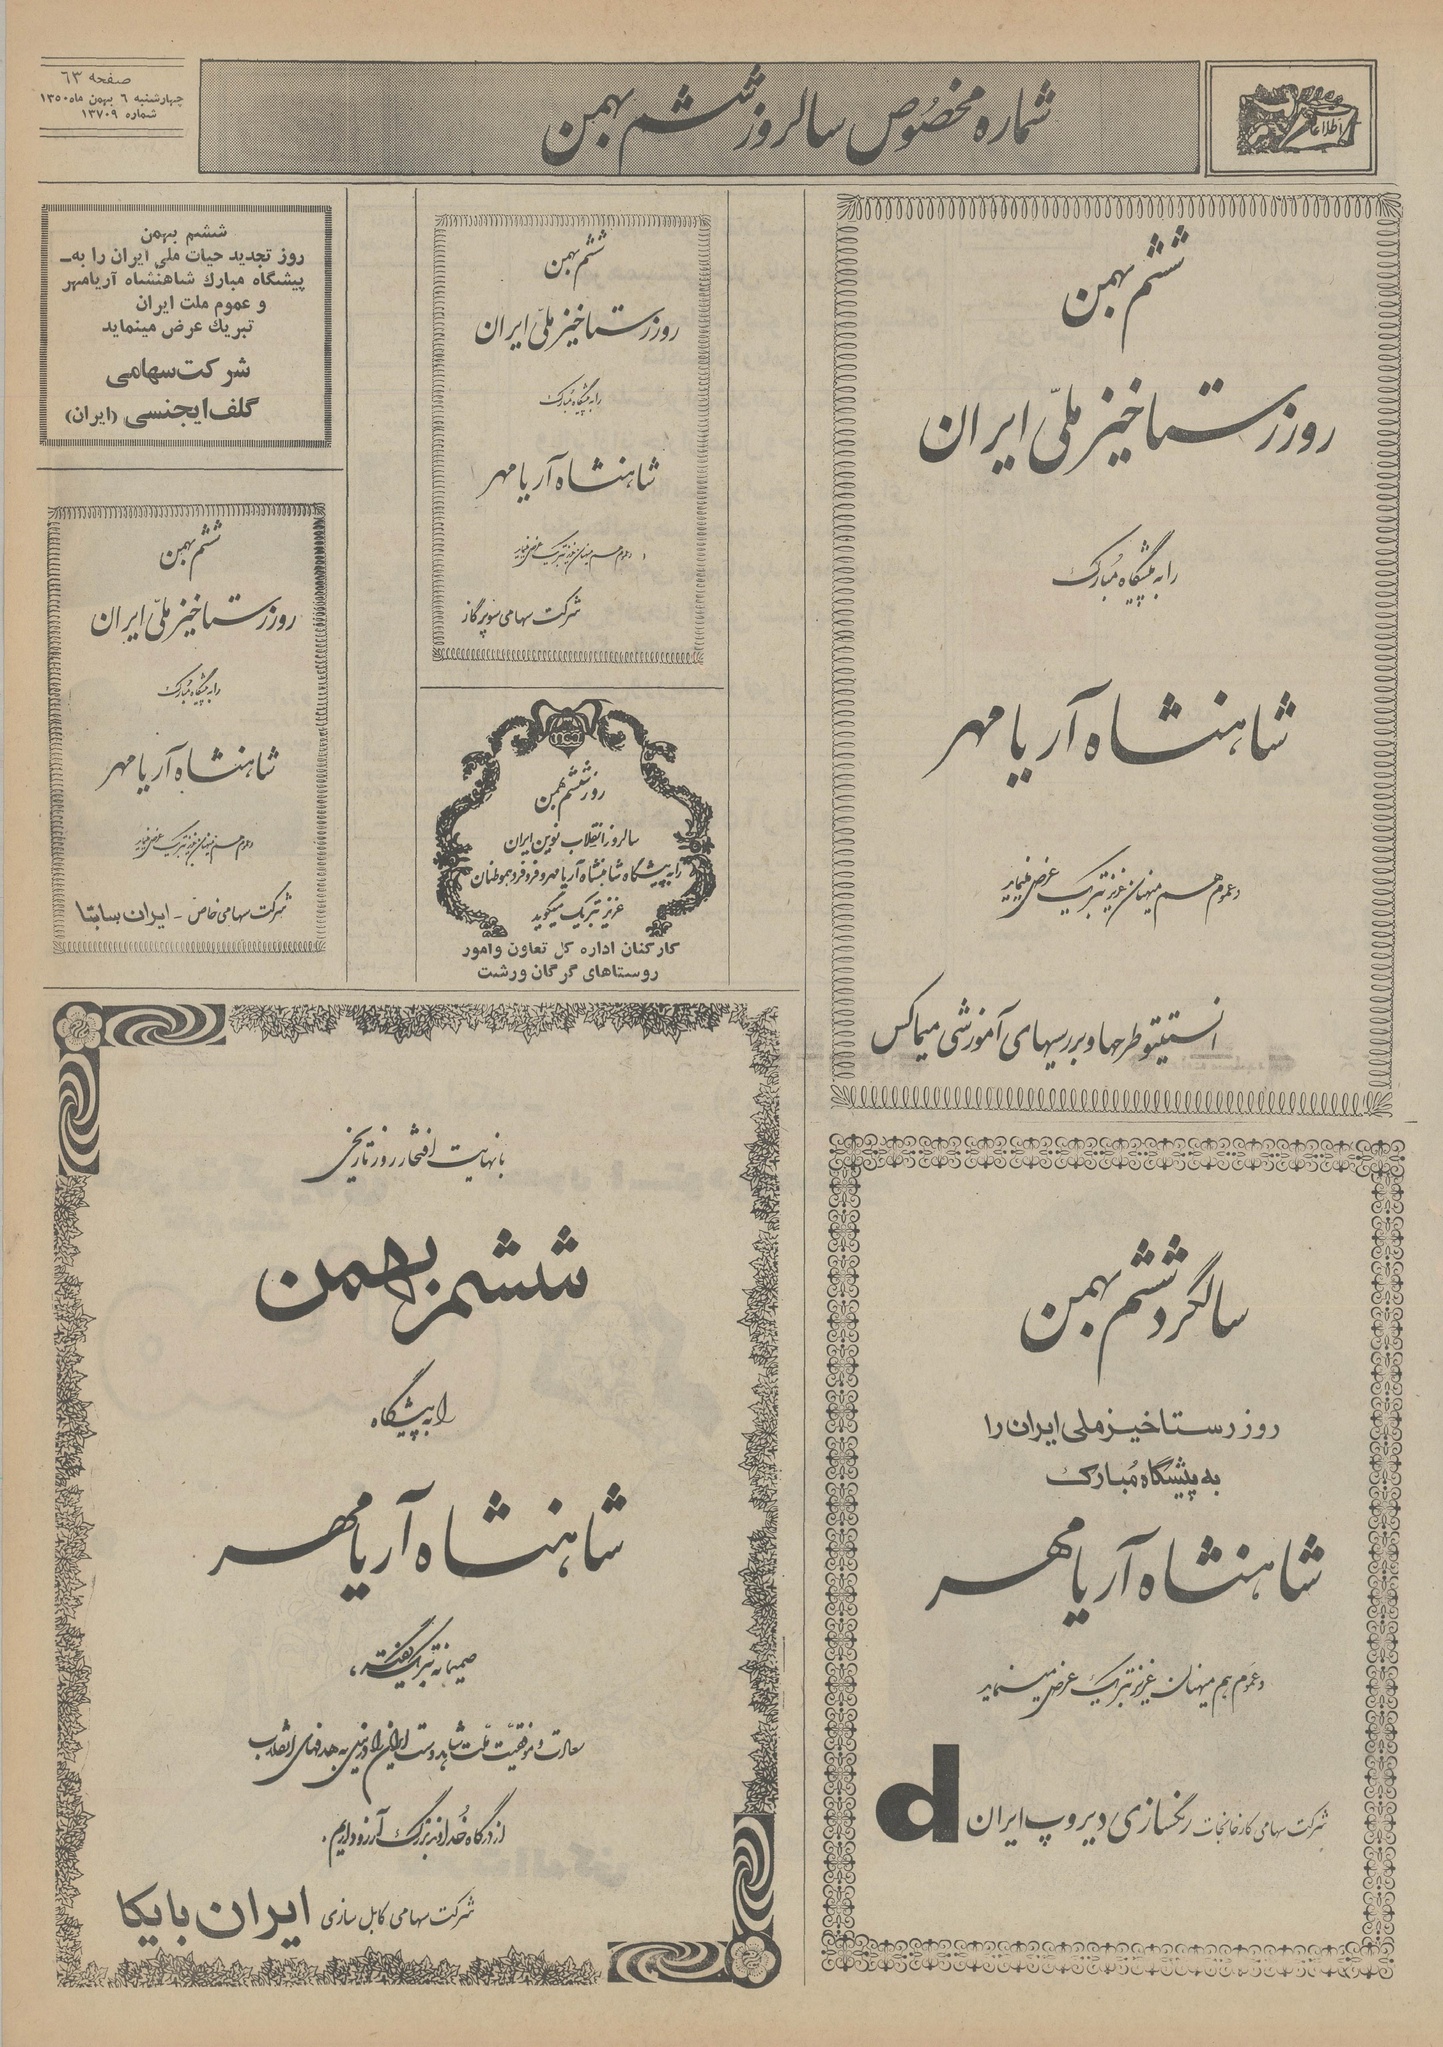 صفحه ٦٣
چهارشنبه ٦ بهمن ماه ١٣٥٠
شماره ١٣٧٠٩
شماره مخصوص سالروز ششم بهمن
اطلاعات
ششم بهمن
روز رستاخیز ملّی ایران
را به پیشگاه مُبارک
شاهنشاه آریامهر
و عموم هم میهنان عزیز تبریک عرض مینماید
انستیتو طرحها و بررسیهای آموزشی میماکس
ششم بهمن
روز رستاخیز ملّی ایران
را به پیشگاه مُبارک
شاهنشاه آریامهر
و عموم هم میهنان عزیز تبریک عرض مینماید
شرکت سهامی سوپر گاز
روز ششم بهمن
سالروز انقلاب نوین ایران
را به پیشگاه شاهنشاه آریامهر و فرد فرد هموطنان
عزیز تبریک میگوید
کارکنان اداره کل تعاون و امور
روستاهای گرگان و رشت
ششم بهمن
روز تجدید حیات ملی ایران را به‌ـ
پیشگاه مبارک شاهنشاه آریامهر
و عموم ملت ایران
تبریک عرض مینماید
شرکت سهامی
گلف ایجنسی (ایران)
ششم بهمن
روز رستاخیز ملّی ایران
را به پیشگاه مُبارک
شاهنشاه آریامهر
و عموم هم میهنان عزیز تبریک عرض مینماید
شرکت سهامی خاص - ایران ساپتا
سالگرد ششم بهمن
روز رستاخیز ملی ایران را
به پیشگاه مُبارک
شاهنشاه آریامهر
و عموم هم میهنان عزیز تبریک عرض مینماید
شرکت سهامی کارخانجات رنگسازی دیروپ ایران d
با نهایت افتخار روز تاریخی
ششم بهمن
را به پیشگاه
شاهنشاه آریامهر
صمیمانه تبریک گفته،
سعادت و موفقیّت ملّت شاهدوست ایران را در نیل به هدفهای انقلاب
از درگاه خُداوند بزرگ آرزو داریم.
شرکت سهامی کابل سازی ایران بایکا